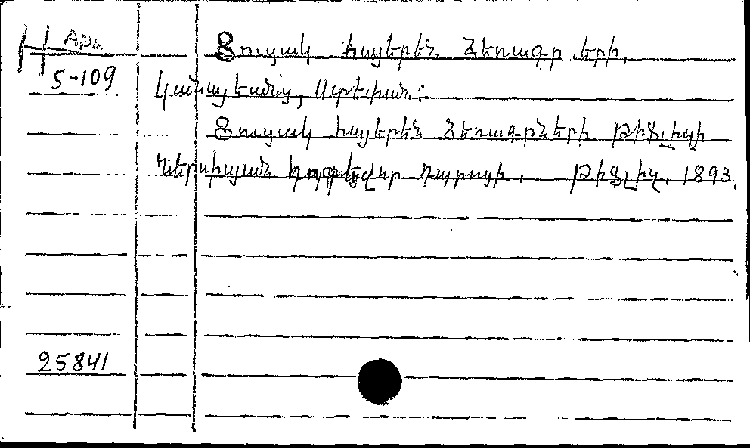 Արև
5-109
Ցուցակ հայերեն ձեռագրերի.
Կանայեանց, Ստեփան:
Ցուցակ հայերեն ձեռագրների Թիֆլիսի
Ներսիսյան հոգևոր դպրոցի. Թիֆլիս, 1893.
25841